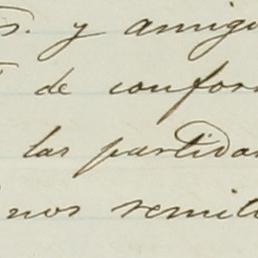 s. y amigo
de confor
las partida
nos remit